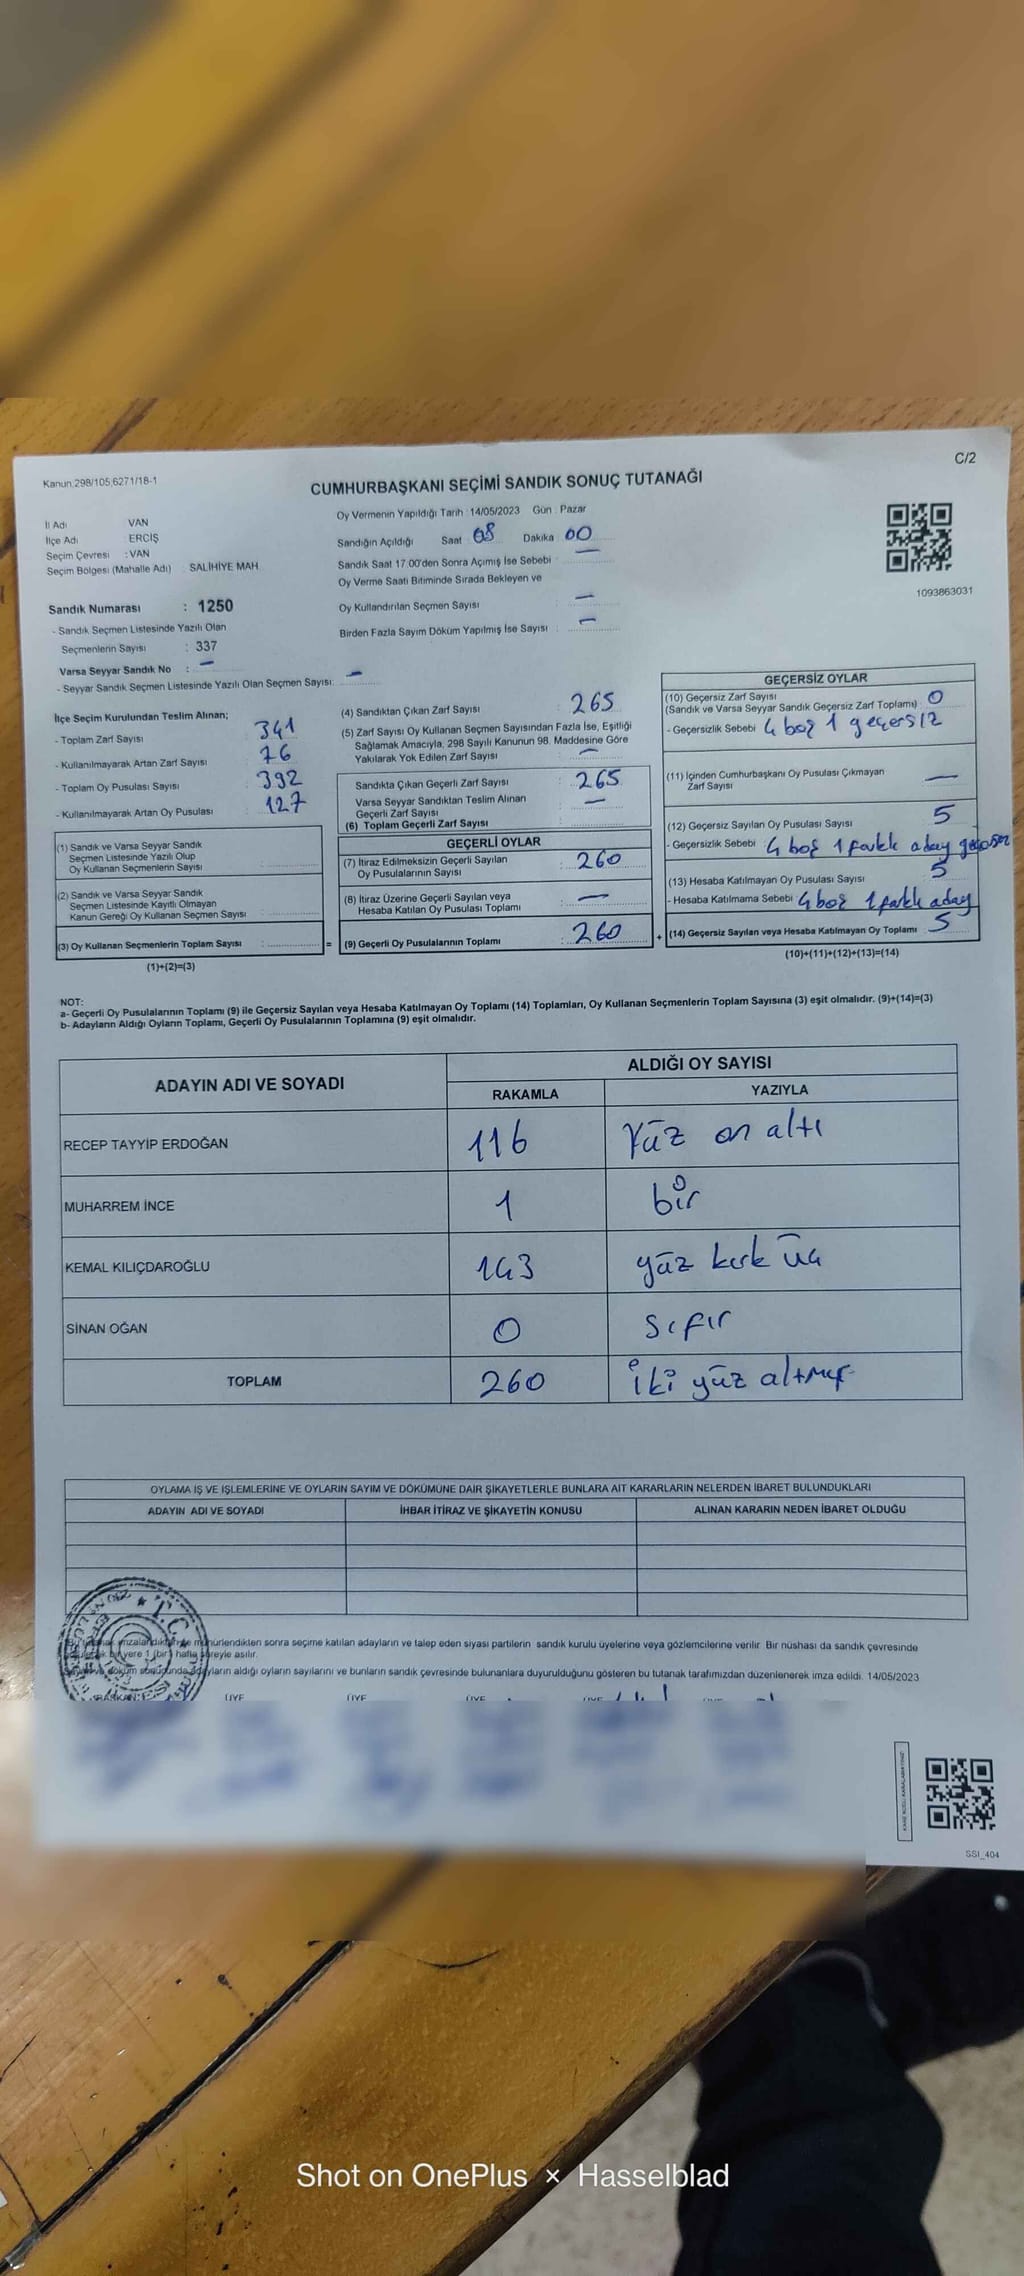 C/2
Kanun 298/105,6271/18-1
CUMHURBAŞKANI SEÇİMİ SANDIK SONUÇ TUTANAĞI
İl Adı VAN
İlçe Adı ERCİŞ
Seçim Çevresi : VAN
Seçim Bölgesi (Mahalle Adı) SALİHİYE MAH.
Oy Vermenin Yapıldığı Tarih :14/05/2023 Gün : Pazar
Sandığın Açıldığı Saat 08 Dakika 00
Sandık Saat 17 00'den Sonra Açımış İse Sebebi : —
Oy Verme Saati Bitiminde Sırada Bekleyen ve
Oy Kullandırılan Seçmen Sayısı : —
Birden Fazla Sayım Döküm Yapılmış İse Sayısı : —
1093863031
Sandık Numarası : 1250
- Sandık Seçmen Listesinde Yazılı Olan
Seçmenlerin Sayısı : 337
Varsa Seyyar Sandık No : —
- Seyyar Sandık Seçmen Listesinde Yazılı Olan Seçmen Sayısı: —
İlçe Seçim Kurulundan Teslim Alınan;
- Toplam Zarf Sayısı 341
- Kullanılmayarak Artan Zarf Sayısı 76
- Toplam Oy Pusulası Sayısı 392
- Kullanılmayarak Artan Oy Pusulası 127
(1) Sandık ve Varsa Seyyar Sandık
Seçmen Listesinde Yazılı Olup
Oy Kullanan Seçmenlerin Sayısı
(2) Sandık ve Varsa Seyyar Sandık
Seçmen Listesinde Kayıtlı Olmayan
Kanun Gereği Oy Kullanan Seçmen Sayısı
(3) Oy Kullanan Seçmenlerin Toplam Sayısı : =
(1)+(2)=(3)
(4) Sandıktan Çıkan Zarf Sayısı : 265
(5) Zarf Sayısı Oy Kullanan Seçmen Sayısından Fazla İse, Eşitliği
Sağlamak Amacıyla, 298 Sayılı Kanunun 98. Maddesine Göre
Yakılarak Yok Edilen Zarf Sayısı —
Sandıkta Çıkan Geçerli Zarf Sayısı : 265
Varsa Seyyar Sandıktan Teslim Alınan
Geçerli Zarf Sayısı —
(6) Toplam Geçerli Zarf Sayısı :
GEÇERLİ OYLAR
(7) İtiraz Edilmeksizin Geçerli Sayılan
Oy Pusulalarının Sayısı : 260
(8) İtiraz Üzerine Geçerli Sayılan veya
Hesaba Katılan Oy Pusulası Toplamı : —
(9) Geçerli Oy Pusulalarının Toplamı : 260 +
GEÇERSİZ OYLAR
(10) Geçersiz Zarf Sayısı 0
(Sandık ve Varsa Seyyar Sandık Geçersiz Zarf Toplamı)
- Geçersizlik Sebebi 4 boş 1 geçersiz
(11) İçinden Cumhurbaşkanı Oy Pusulası Çıkmayan
Zarf Sayısı —
(12) Geçersiz Sayılan Oy Pusulası Sayısı 5
- Geçersizlik Sebebi : 4 boş 1 farklı aday
(13) Hesaba Katılmayan Oy Pusulası Sayısı 5
- Hesaba Katılmama Sebebi 4 boş 1 farklı aday
(14) Geçersiz Sayılan veya Hesaba Katılmayan Oy Toplamı : 5
(10)+(11)+(12)+(13)=(14)
NOT:
a- Geçerli Oy Pusulalarının Toplamı (9) ile Geçersiz Sayılan veya Hesaba Katılmayan Oy Toplamı (14) Toplamları, Oy Kullanan Seçmenlerin Toplam Sayısına (3) eşit olmalıdır. (9)+(14)=(3)
b- Adayların Aldığı Oyların Toplamı, Geçerli Oy Pusulalarının Toplamına (9) eşit olmalıdır.
ADAYIN ADI VE SOYADI ALDIĞI OY SAYISI
RAKAMLA YAZIYLA
RECEP TAYYİP ERDOĞAN 116 Yüz on altı
MUHARREM İNCE 1 bir
KEMAL KILIÇDAROĞLU 143 yüz kırk üç
SİNAN OĞAN 0 sıfır
TOPLAM 260 iki yüz altmış
OYLAMA İŞ VE İŞLEMLERİNE VE OYLARIN SAYIM VE DÖKÜMÜNE DAİR ŞİKAYETLERLE BUNLARA AİT KARARLARIN NELERDEN İBARET BULUNDUKLARI
ADAYIN ADI VE SOYADI İHBAR İTİRAZ VE ŞİKAYETİN KONUSU ALINAN KARARIN NEDEN İBARET OLDUĞU
T.C.
mühürlendikten sonra seçime katılan adayların ve talep eden siyasi partilerin sandık kurulu üyelerine veya gözlemcilerine verilir. Bir nüshası da sandık çevresinde
yere 1 (bir) hafta süreyle asılır.
adayların aldığı oyların sayılarını ve bunların sandık çevresinde bulunanlara duyurulduğunu gösteren bu tutanak tarafımızdan düzenlenerek imza edildi. 14/05/2023
BAŞKAN ÜYE ÜYE ÜYE ÜYE
SSI_404
Shot on OnePlus × Hasselblad